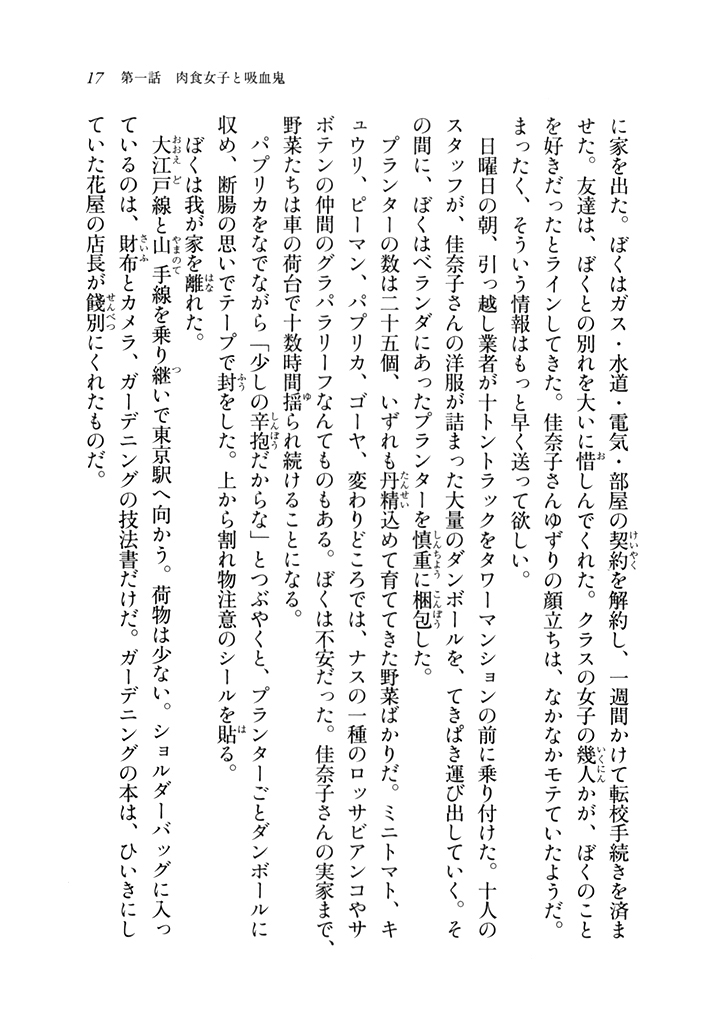 17　第一話　肉食女子と吸血鬼
に家を出た。ぼくはガス・水道・電気・部屋の契約を解約し、一週間かけて転校手続きを済ま
せた。友達は、ぼくとの別れを大いに惜しんでくれた。クラスの女子の幾人かが、ぼくのこと
を好きだったとラインしてきた。佳奈子さんゆずりの顔立ちは、なかなかモテていたようだ。
まったく、そういう情報はもっと早く送って欲しい。
日曜日の朝、引っ越し業者が十トントラックをタワーマンションの前に乗り付けた。十人の
スタッフが、佳奈子さんの洋服が詰まった大量のダンボールを、てきぱき運び出していく。そ
の間に、ぼくはベランダにあったプランターを慎重に梱包した。
プランターの数は二十五個、いずれも丹精込めて育ててきた野菜ばかりだ。ミニトマト、キ
ュウリ、ピーマン、パプリカ、ゴーヤ、変わりどころでは、ナスの一種のロッサビアンコやサ
ボテンの仲間のグラパラリーフなんてものもある。ぼくは不安だった。佳奈子さんの実家まで、
野菜たちは車の荷台で十数時間揺られ続けることになる。
パプリカをなでながら「少しの辛抱だからな」とつぶやくと、プランターごとダンボールに
収め、断腸の思いでテープで封をした。上から割れ物注意のシールを貼る。
ぼくは我が家を離れた。
大江戸線と山手線を乗り継いで東京駅へ向かう。荷物は少ない。ショルダーバッグに入っ
ているのは、財布とカメラ、ガーデニングの技法書だけだ。ガーデニングの本は、ひいきにし
ていた花屋の店長が餞別にくれたものだ。